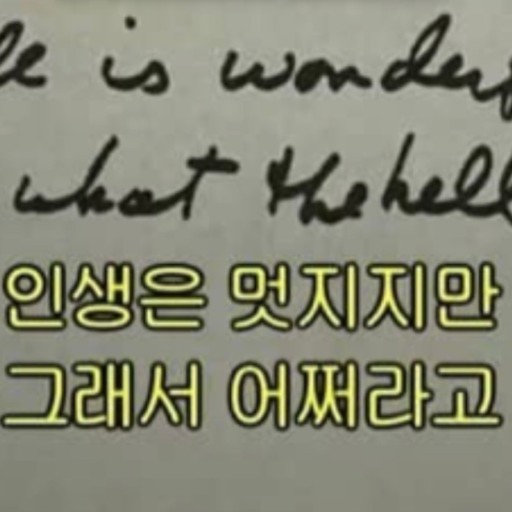 fe is wonderf
what the hell
인생은 멋지지만
그래서 어쩌라고